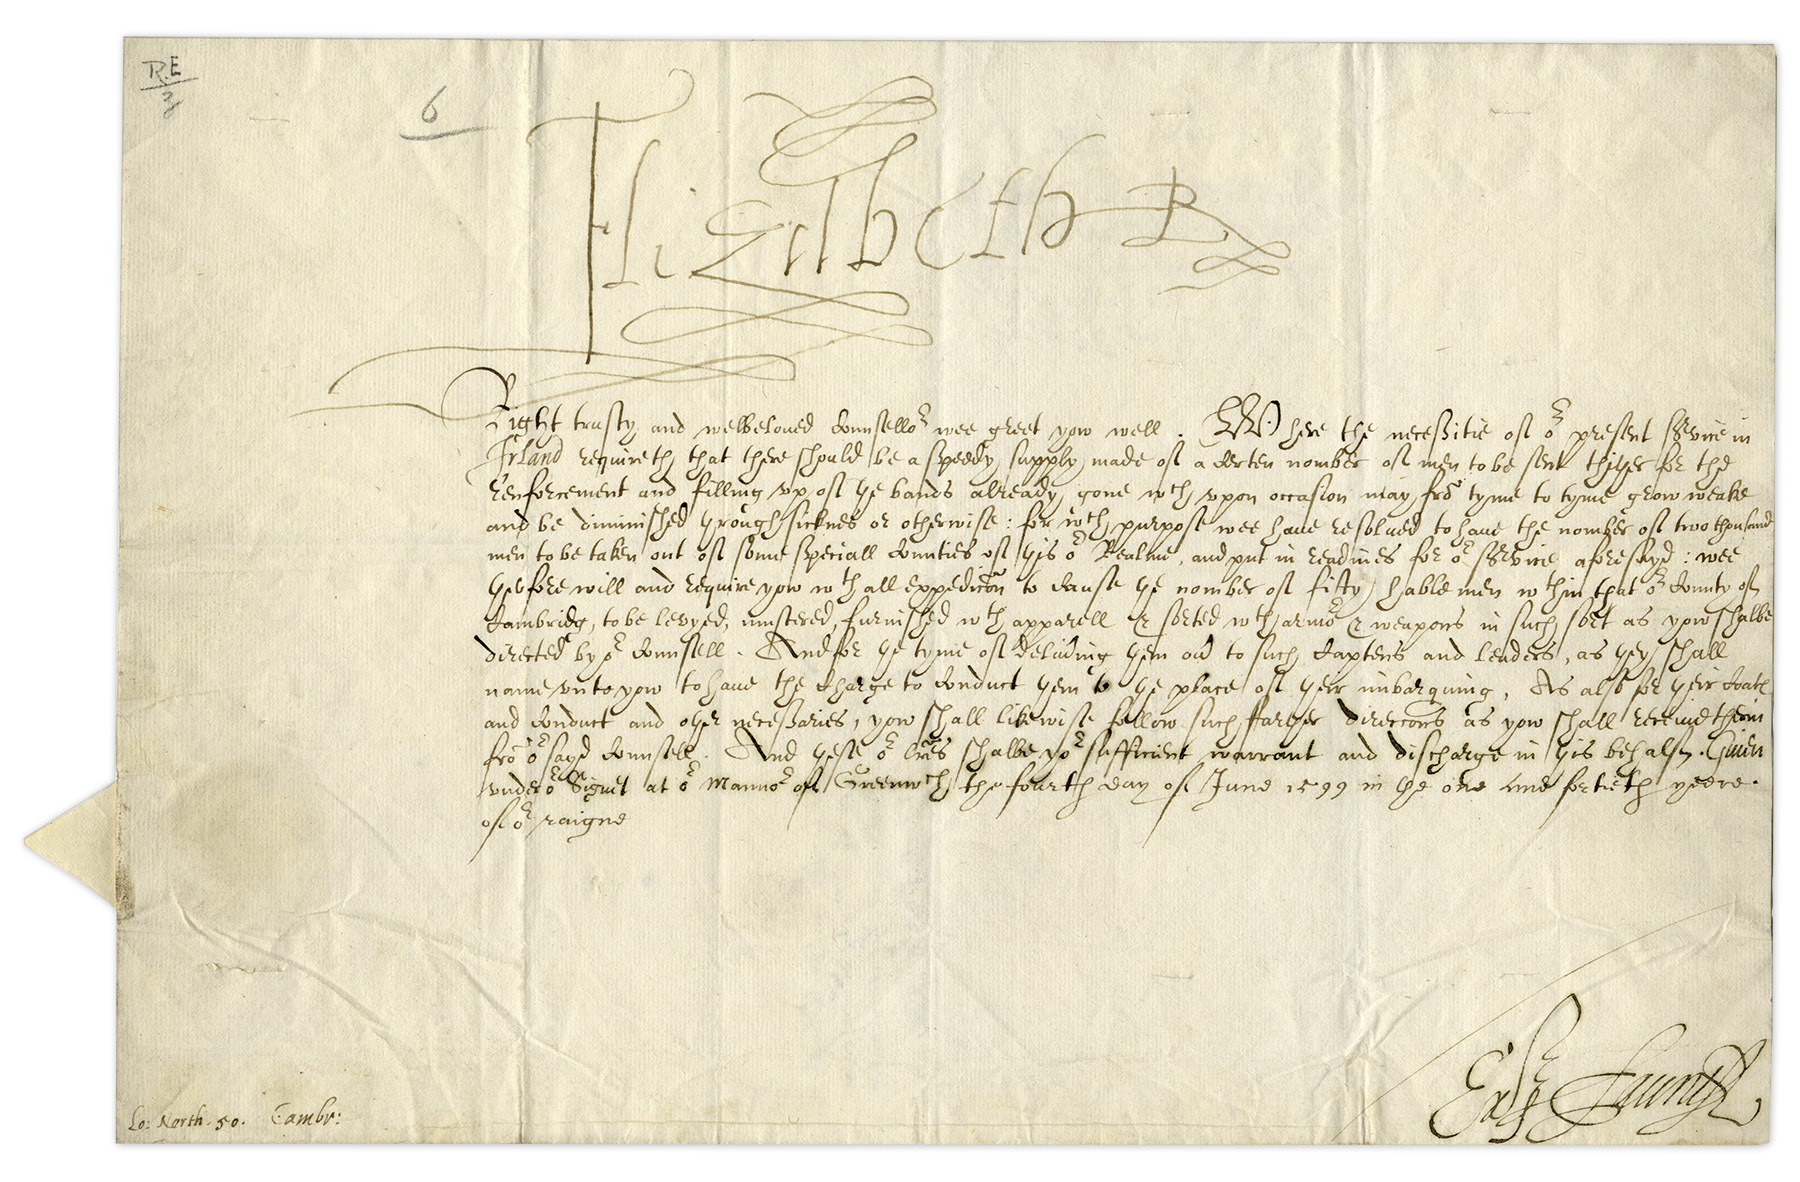 R.E
3
6
Elizabeth R
Right trusty and welbeloued Counsello^r wee greet yow well. Where the necessitie of o^r present service in
Irland requireth that there should be a speedy supply made of a certen nomber of men to be sent thyther for the
renforcement and filling vp of ye bands already gone w^ch vpon occasion may frõ tyme to tyme grow weake
and be diminished through sicknes or otherwise: for w^ch purpose wee haue resolued to haue the nomber of two thousand
men to be taken out of some speciall Counties of this o^r Realme, and put in readines for o^r service aforesayd: wee
therfore will and require yow w^th all expedicõn to cause ye nomber of fifty hable men w^thin that o^r County of
Cambridg, to be levyed, mustered, furnished w^th apparell & sorted w^th armo^r & weapons in such sort as yow shalbe
directed by o^r Counsell. And for ye tyme of deliuing them ou^r to such Captens and leaders, as they shall
name vnto yow to haue the charge to conduct them to ye place of their imbarquing, As also for their Coats
and conduct and other necessaries, yow shall likewise follow such farther direccõns as yow shall receiue therin
frõ o^r sayd Counsell. And these o^r lrẽs shalbe yo^r sufficient warrant and discharge in this behalf. Giuen
vnder o^r Signet at o^r Manno^r of Greenw^ch the fourth day of June 1599 in the one and fortieth yeere
of o^r raigne
Lo: North. 50. Cambr: